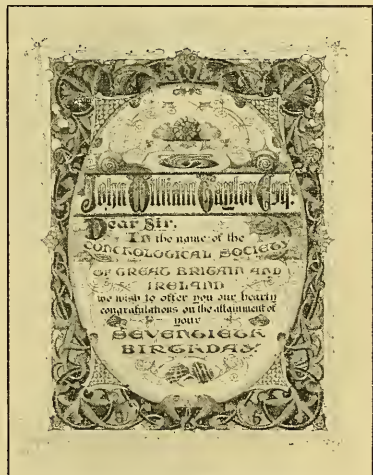 John William Taylor Esq.
Dear Sir,
In the name of the
CONCHOLOGICAL SOCIETY
OF GREAT BRITAIN AND
IRELAND
we wish to offer you our hearty
congratulations on the attainment of
your
SEVENTIETH
BIRTHDAY.